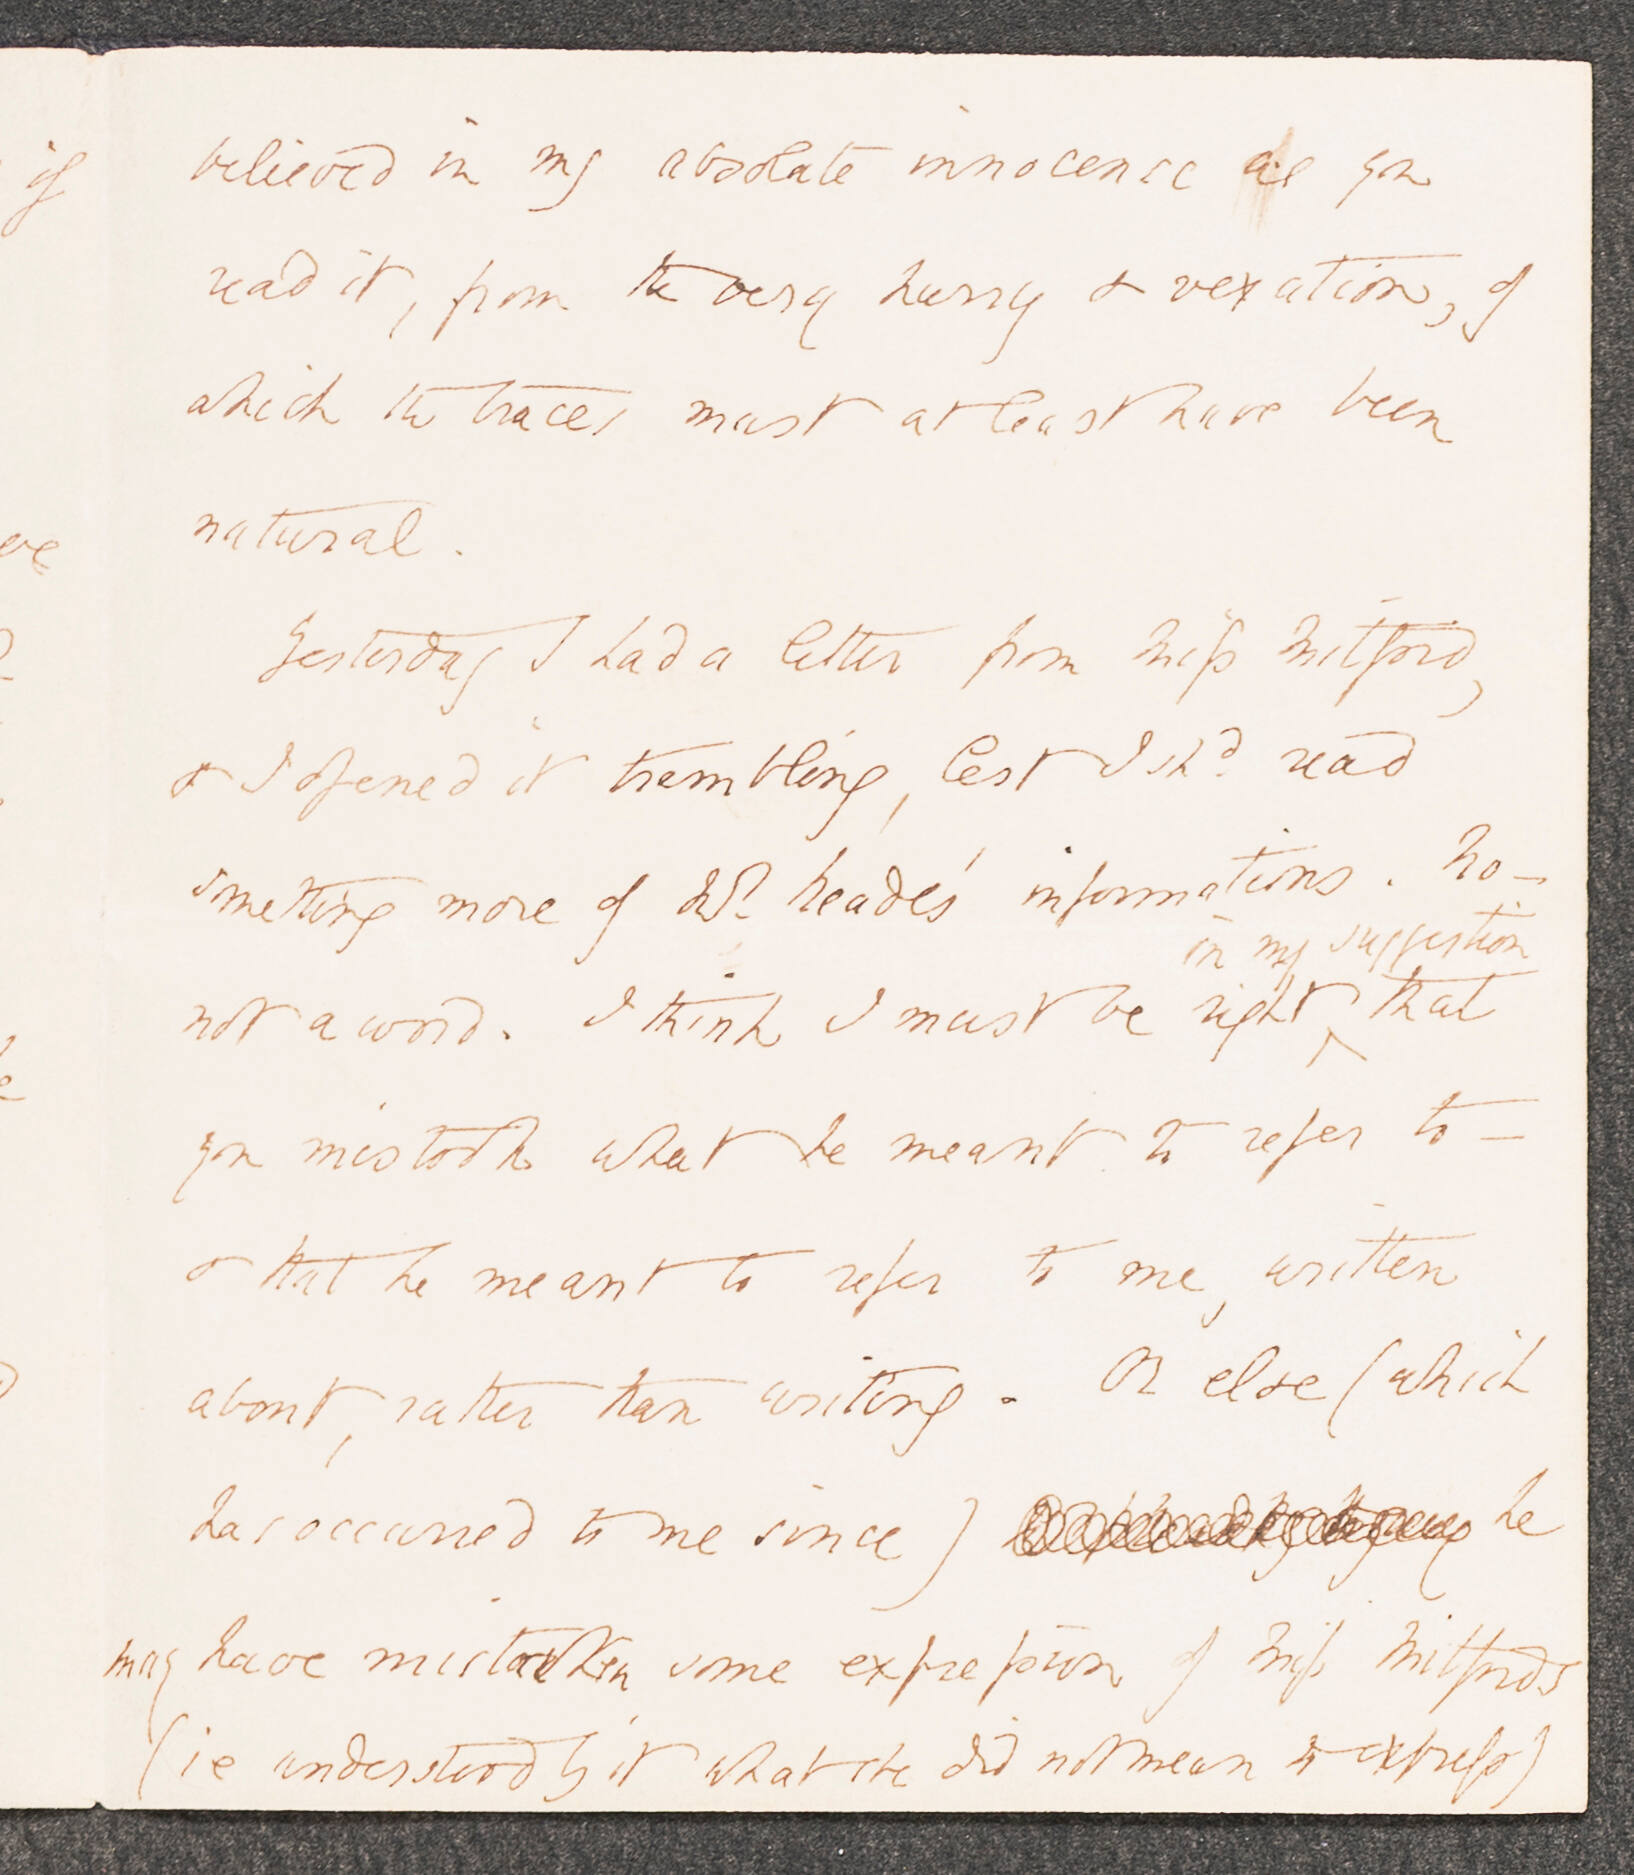 believed in my absolute innocence as you
read it, from the very hurry & vexation, of
which the traces must at least have been
natural.
Yesterday I had a letter from Miss Mitford,
& I opened it trembling, lest I shd. read
something more of Dr. Heade's informations. No—
not a word. I think I must be right ^ in my suggestion that
you mistook what he meant to refer to—
& that he meant to refer to me, written
about, rather than writing. Or else (which
has occurred to me since) he
may have mistaken some expression of Miss Mitfords
(ie understood by it what she did not mean to express)
if